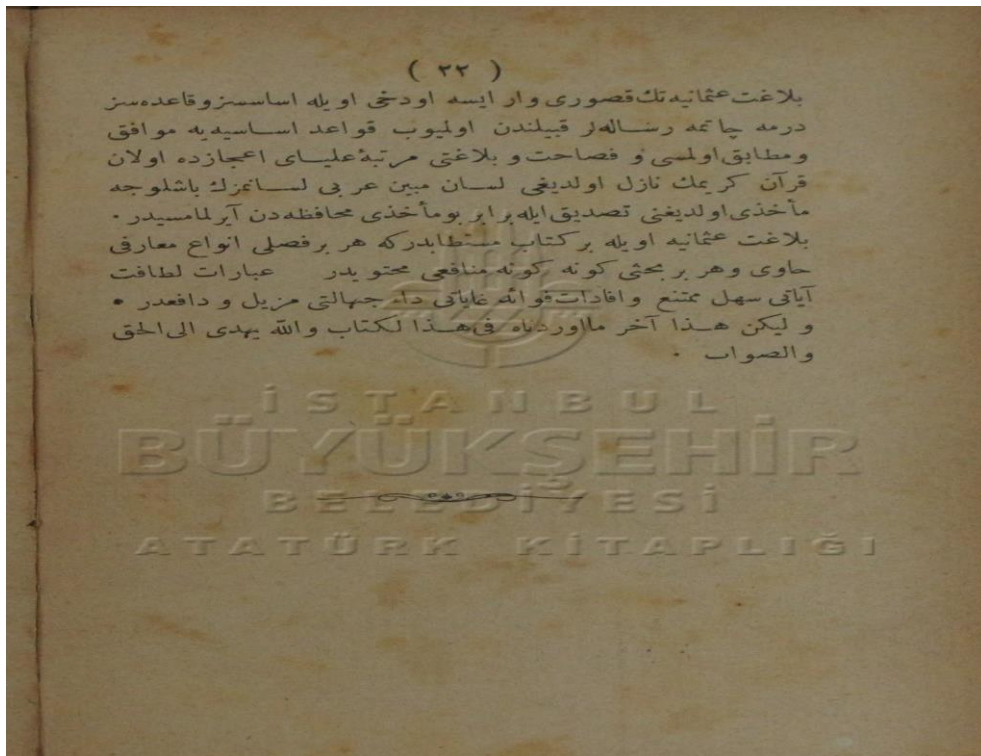 ( ٢٢ )
بلاغت عثمانیه‌نك قصوری وار ایسه اودخی اویله اساسسز وقاعده‌سز
درمه چاتمه رساله‌لر قبیلندن اولمیوب قواعد اساسیه‌یه موافق
ومطابق اولمسی و فصاحت و بلاغتی مرتبهٔ علیای اعجازده اولان
قرآن کریمك نازل اولدیغی لسان مبین عربی لسانمزك باشلوجه
مأخذی اولدیغنی تصدیق ایله برابر بومأخذی محافظه‌دن آیرلمامسیدر .
بلاغت عثمانیه اویله برکتاب مستطابدرکه هر برفصلی انواع معارفی
حاوی وهر بر بحثی کونه کونه منافعی محتویدر عبارات لطافت
آیاتی سهل ممتنع وافادات فوائد غایاتی داء جهالتی مزیل و دافعدر .
و لیکن هذا آخر مااوردناه فی هذا لکتاب والله یهدی الی الحق
والصواب .
İSTANBUL
BÜYÜKŞEHİR
BELEDİYESİ
ATATÜRK KİTAPLIĞI